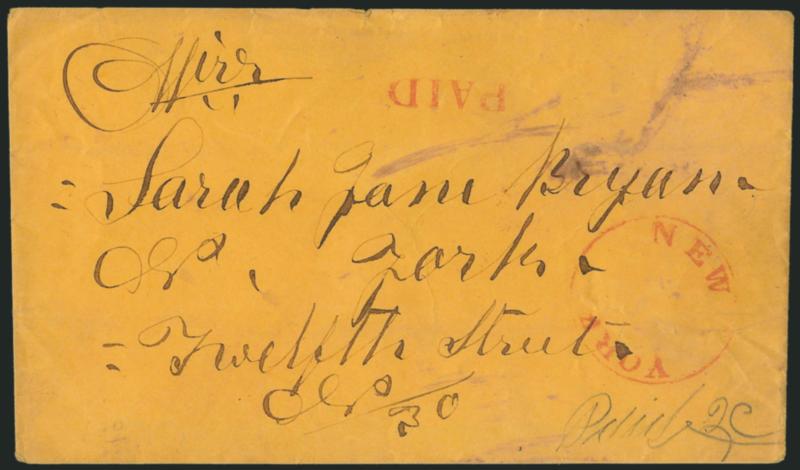 Miss
PAID
Sarah Jane Bryan
N York
NEW YORK
Twelfth Street
No 30
Paid 2c